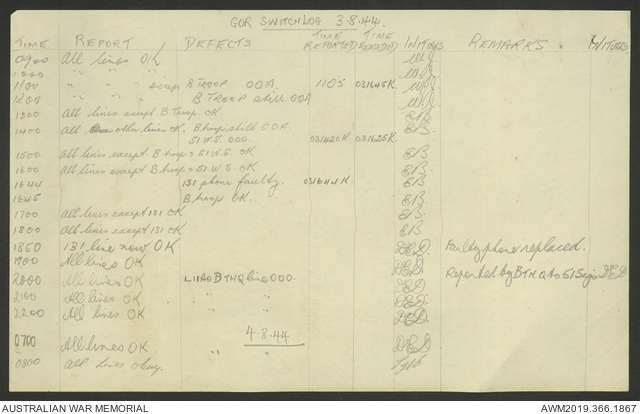 GOR SWITCH LOG 3.8.44.
TIME REPORT DEFECTS TIME REPORTED TIME INITIALS REMARKS INITIALS
0900 All lines OK
1000 " " "
1100 " " " except B TROOP OOA. 1105 031645K.
1200 B TROOP still OOA
1300 All lines except B Troop OK EB
1400 All other lines OK. B troop still OOA. EB
51 W.S. OOO. 031420K 031625K.
1500 All lines except B troop + 51 W.S. OK EB
1600 All lines except B troop + 51 W.S. OK EB
1644 131 phone faulty. 031644K. EB
1645 B troop OK. EB
1700 All lines except 131 OK EB
1800 All lines except 131 OK EB
1850 131 line now OK DED. Faulty phone replaced.
1900 All lines OK DED.
2000 All lines OK BTHQ line OOO. DED. Reported by BTHQ to 51 Sigs DED
2100 All lines OK " " DED.
2200 All lines OK " " DED.
4.8.44
0700 All lines OK " " DED
0800 All lines okay. " "
AUSTRALIAN WAR MEMORIAL AWM2019.366.1867